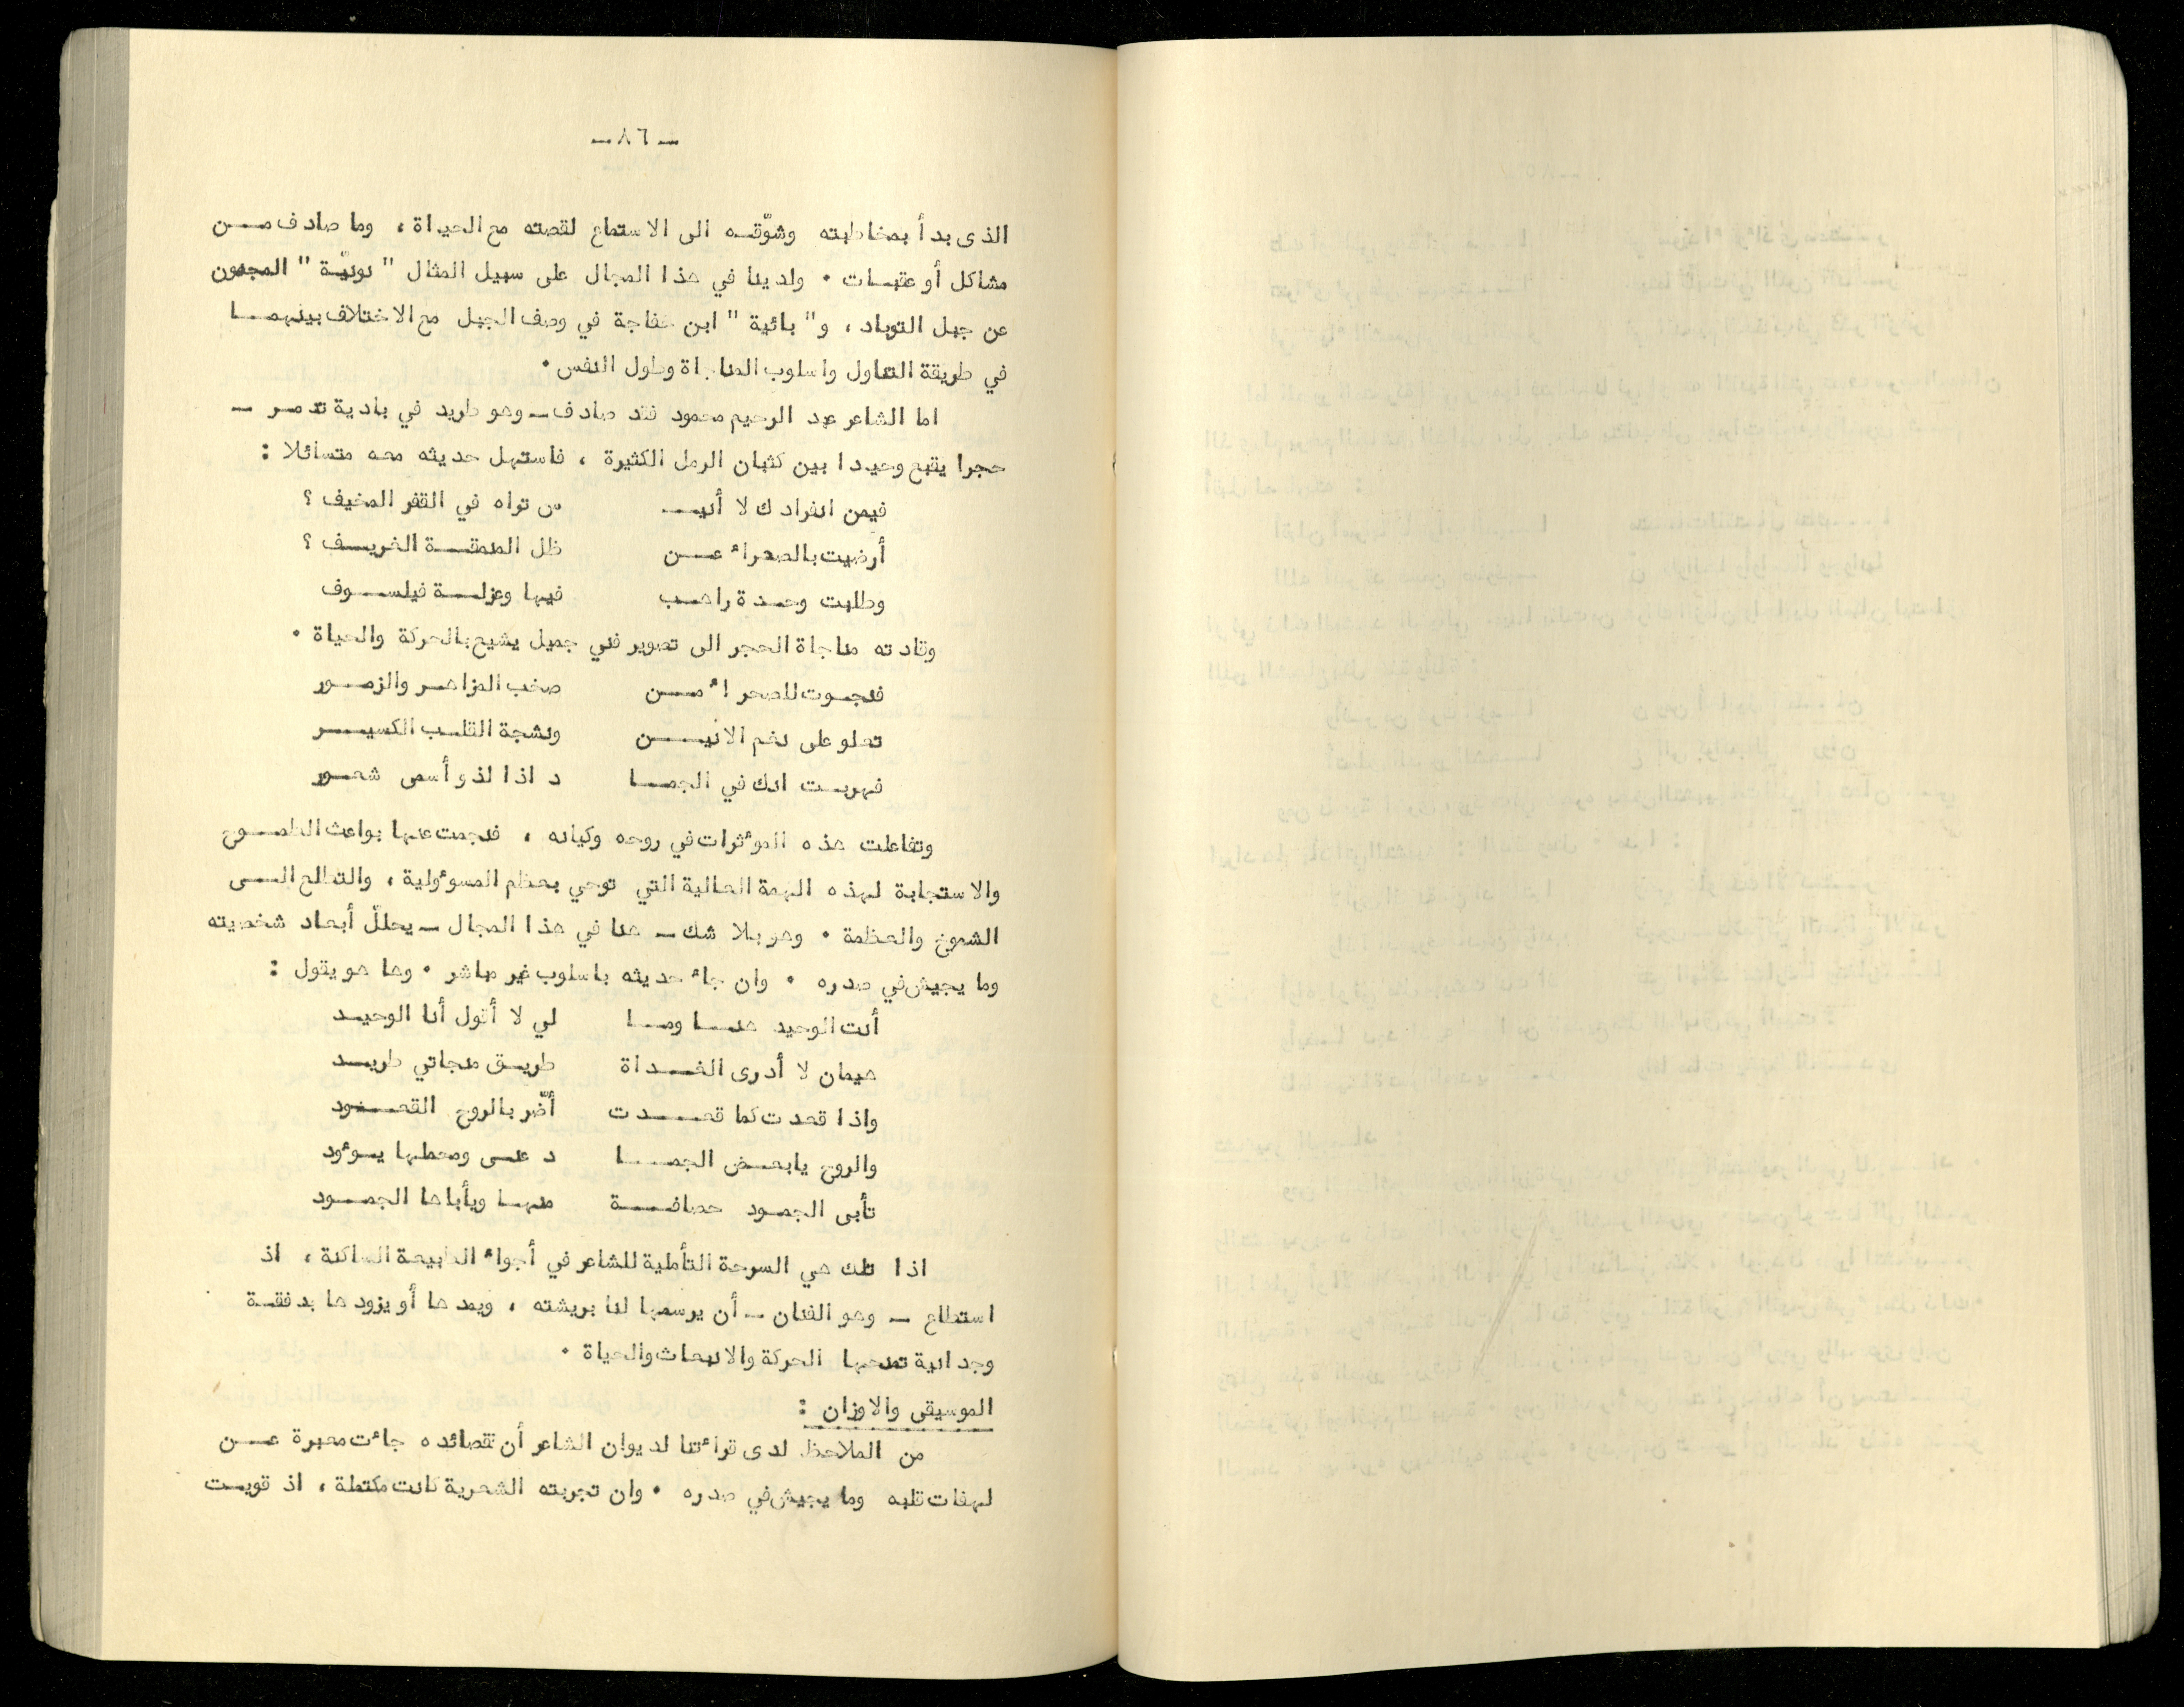 ـ ٨٦ ـ
الذى بدأ بمخاطبته وشوّقه الى الاستماع لقصته مع الحياة ، وما صادف من
مشاكل أو عقبات ٠ ولدينا في هذا المجال على سبيل المثال " نونيّة " المجنون
عن جبل التوباد ، و " بائية " ابن خفاجة في وصف الجبل مع الاختلاف بينهما
في طريقة التناول واسلوب المناجاة وطول النفس ٠
اما الشاعر عبد الرحيم محمود فقد صادف ـ وهو طريد في بادية تدمر ـ
حجرا يقبع وحيدا بين كثبان الرمل الكثيرة ، فاستهل حديثه معه متسائلا :
فيمن انفرادك لا أنيـ س تراه في القفر المخيف ؟
أرضيت بالصحراء عن ظل المنمقة الغريف ؟
وطلبت وحدة راهب فيها وعزلة فيلسوف
وقادته مناجاة الحجر الى تصوير فني جميل يشيح بالحركة والحياة ٠
فنجوت للصحراء من صخب المزاهر والزمور
تعلو على نغم الانين ونشجة القلب الكسير
فهربت انك في الجما د اذا لذو أسمى شعور
وتفاعلت هذه المؤثرات في روحه وكيانه ، فنجمت عنها بواعث الطموح
والاستجابة لهذه الهمة العالية التي توحي بعظم المسؤولية ، والتطلع الى
الشموخ والعظمة ٠ وهو بلا شك ـ هنا في هذا المجال ـ يحللّ أبعاد شخصيته
وما يجيش في صدره ٠ وان جاء حديثه باسلوب غير مباشر ٠ وها هو يقول :
أنت الوحيد هنا وما لي لا أقول أنا الوحيد
هيمان لا أدرى الغداة طريق منجاتي طريد
واذا قعدت كما قعدت أضّر بالروح القعود
والروح يابعض الجما د عسى ومحطها يؤود
تأبى الجمود حصافة منها ويأباها الجمود
اذا تلك هي السرحة التأملية للشاعر في أجواء الطبيعة الساكنة ، اذ
استطاع ـ وهو الفنان ـ أن يرسمها لنا بريشته ، ويمدها أو يزودها بدفقة
وجدانية تمنحها الحركة والانبعاث والحياة ٠
الموسيقى والاوزان :
من الملاحظ لدى قراءتنا لديوان الشاعر أن قصائده جاءت معبرة عن
لهفات قلبه وما يجيش في صدره ٠ وان تجربته الشعرية كانت مكتملة ، اذ قويت